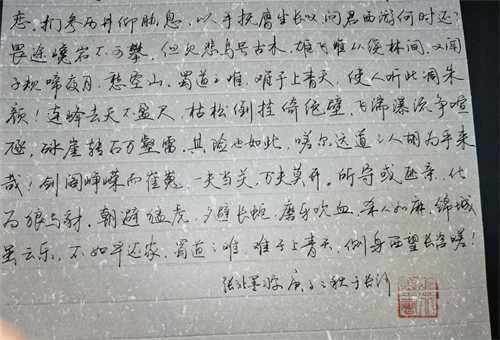 峦，扪参历井仰胁息，以手抚膺坐长叹，问君西游何时还？
畏途巉岩不可攀，但见悲鸟号古木，雄飞雌从绕林间，又闻
子规啼夜月，愁空山，蜀道之难，难于上青天，使人听此凋朱
颜！连峰去天不盈尺，枯松倒挂倚绝壁，飞湍瀑流争喧
砯崖转石万壑雷，其险也如此，嗟尔远道之人胡为乎来
哉！剑阁峥嵘而崔嵬，一夫当关，万夫莫开，所守或匪亲，化
为狼与豺，朝避猛虎，夕避长蛇，磨牙吮血，杀人如麻，锦城
虽云乐，不如早还家，蜀道之难，难于上青天，侧身西望长咨嗟！
秋于长沙